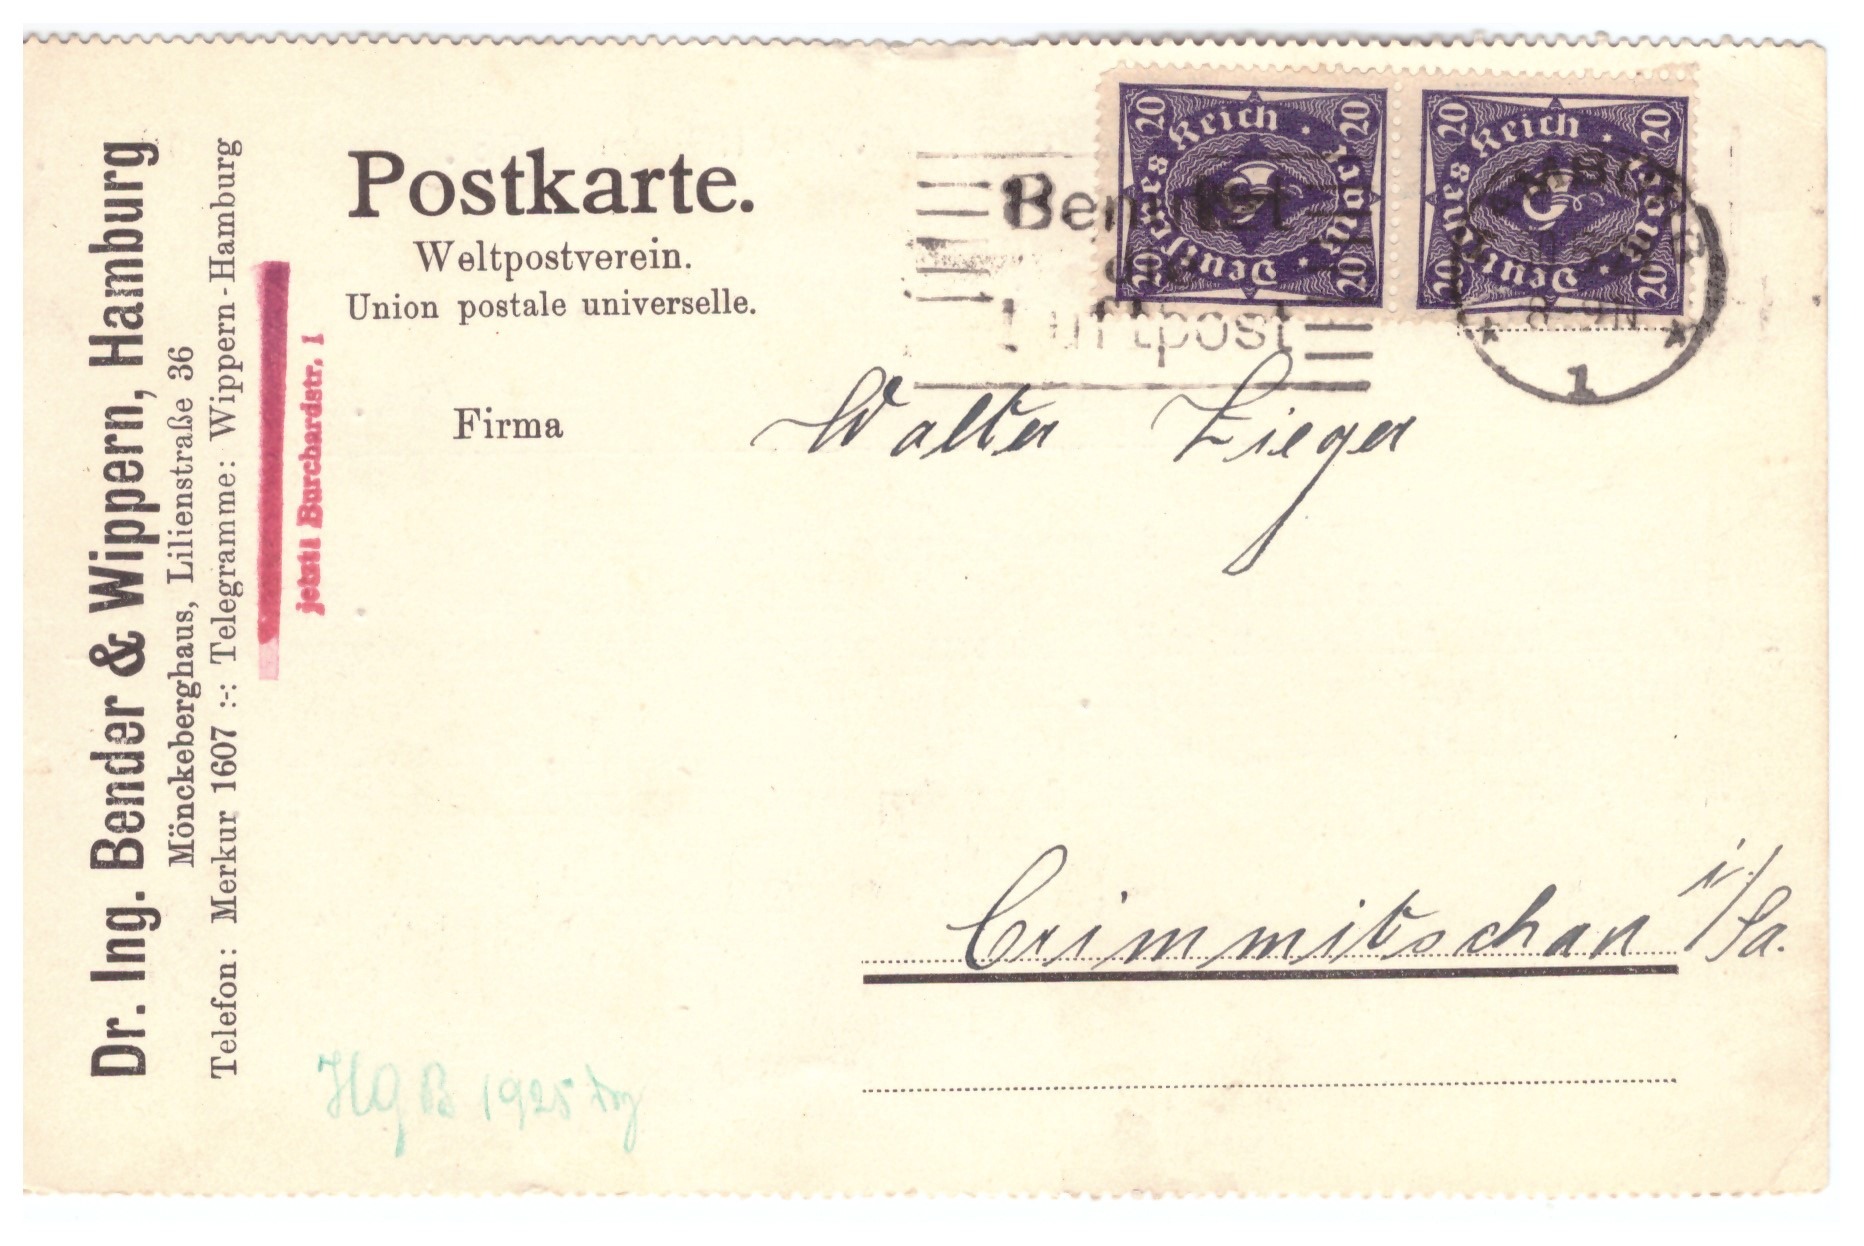 Dr. Ing. Bender & Wippern, Hamburg
Mönckeberghaus, Lilienstraße 36
Telefon: Merkur 1607 :-: Telegramme: Wippern-Hamburg
jetzt: Burchardstr. 1
Postkarte.
Weltpostverein.
Union postale universelle.
Deutsches Reich · 20 Mark · 20 20 20 20
Deutsches Reich · 20 Mark · 20 20 20 20
Benutzt
die
Luftpost
HAMBURG
8-9N
* 1 *
Firma Walter Zieger
Crimmitschau i/Sa.
1925